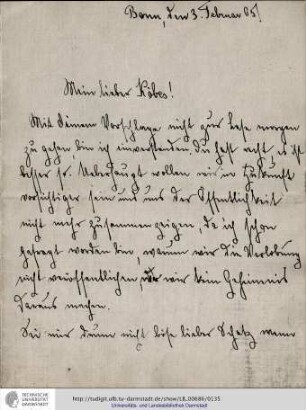 Bonn, den 3. Februar 85!
Mein lieber Köbes!
Mit Deinem Vorschlage nicht zur Lese morgen
zu gehen, bin ich einverstanden. Du hast recht, es ist
besser so. Ueberhaupt wollen wir in Zukunft
vorsichtiger sein und uns der Öffentlichkeit
nicht mehr zusammen zeigen, da ich schon
gefragt worden bin, wann wir die Verlobung
nicht veröffentlichen wir kein Geheimnis
daraus machen.
Sei mir drum nicht böse lieber Schatz wenn
TECHNISCHE
UNIVERSITÄT
DARMSTADT
http://tudigit.ulb.tu-darmstadt.de/show/LB_00686/0131
Universitäts- und Landesbibliothek Darmstadt